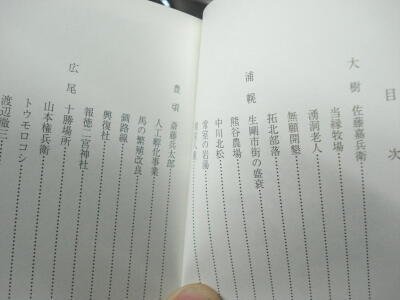 目次
大樹 佐藤嘉兵衛
当縁牧場
湧洞老人
無願開墾
拓北部落
浦幌 生剛市街の盛衰
熊谷農場
中川北松
常室の岩湯
豊頃 斎藤兵太郎
人工孵化事業
馬の繁殖改良
釧路線
興復社
報徳二宮神社
広尾 十勝場所
山本権兵衛
トウモロコシ
渡辺徹三